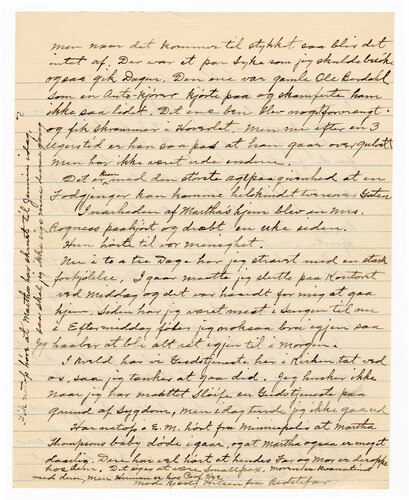 men naar det kommer til stykket saa blir det
intet af. Der var et par Syke som jeg skulde besøke
ogsaa gik Dagen. Den ene var gamle Ole Berdahl
som en Auto-kjører kjørte paa og skamferte ham
ikke saa lidet. Det ene ben blev noget forvrængt
og fik skrammer i Hovedet. Men nu efter en 3
ugerstid er han saa pas at han gaar over gulvet
Men har ikke vært ude endnu.
Det er kun med den største agtpaagivenhed at en
Fodgjenger kan komme helskindet tversover Gaden
I nærheden af Marthas hjem blev en Mrs.
Rogness paakjørt og dræbt en uke siden.
Hun hørte til vor menighet.
Nu i to a tre Dage har jeg strævet med en stærk
forkjølelse, I gaar maatte jeg slutte paa Kontoret
ved Middag og det var haardt for mig at gaa
hjem. Siden har jeg været mest i Sengen til nu
i Eftermiddag føler jeg noksaa bra igjen saa
jeg haaber at bli alt ret igjen til i Morgen.
I kveld har vi Gudstjeneste her i Kirken tæt ved
os, saa jeg tænker at gaa did. Jeg husker ikke
naar jeg har maattet Sløife en Gudstjeneste paa
grund af Sygdom, men i dag turde jeg ikke gaa ud
Har netop hørt fra Minneapolis at Martha
Thompsons baby døde igaar, og at Martha ogsaa er meget
daarlig. Den har vel hørt at hendes Far og Mor er deroppe
hos dem. Det siges at være Smallpox.
med dem, Men Herman er hos
Med Kjærlig Hilsen fra Bedstefar
hore at Martha har skrevet til
saa skal jeg ikke